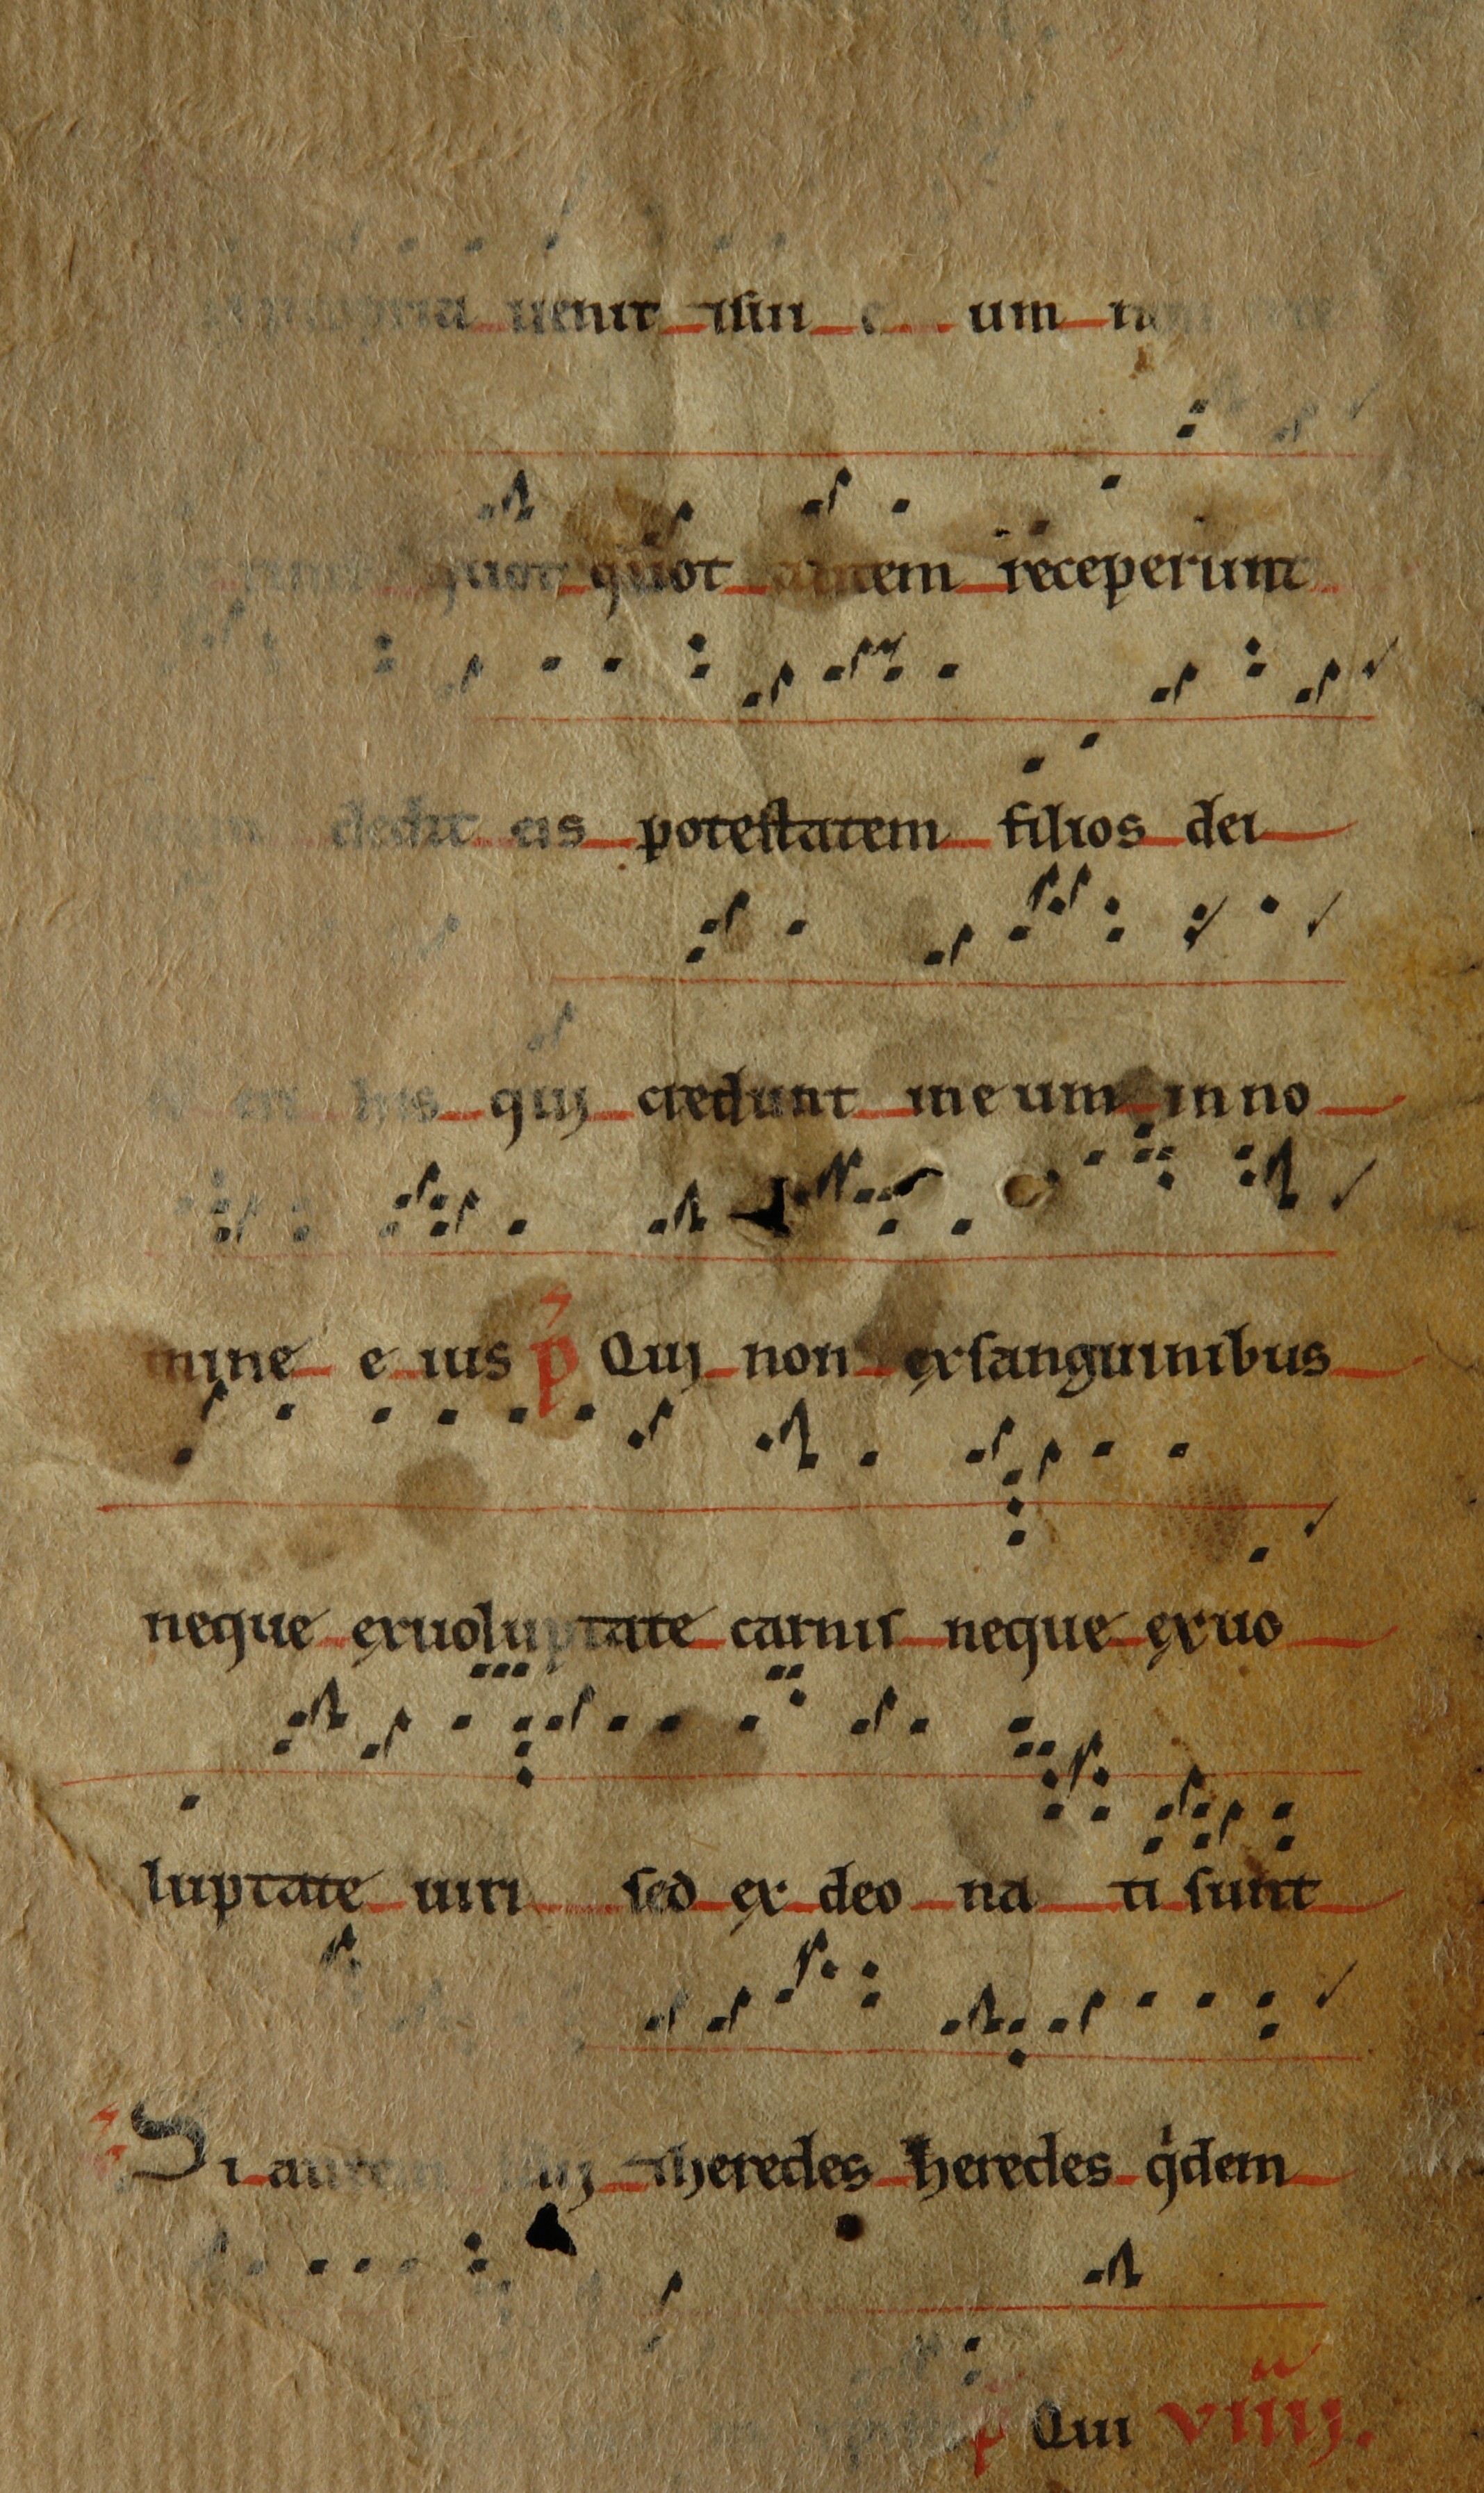 uenit _ISui_ um
quot quot autem receperunt
dedit eis potestatem filios dei
his quj credunt in eum in no
mine e ius p Quj non exsanguinibus
neque exuoluptate carnis neque exuo
luptate uiri sed ex deo na ti sunt
Si autem heredes qdem
p Qui viiij.